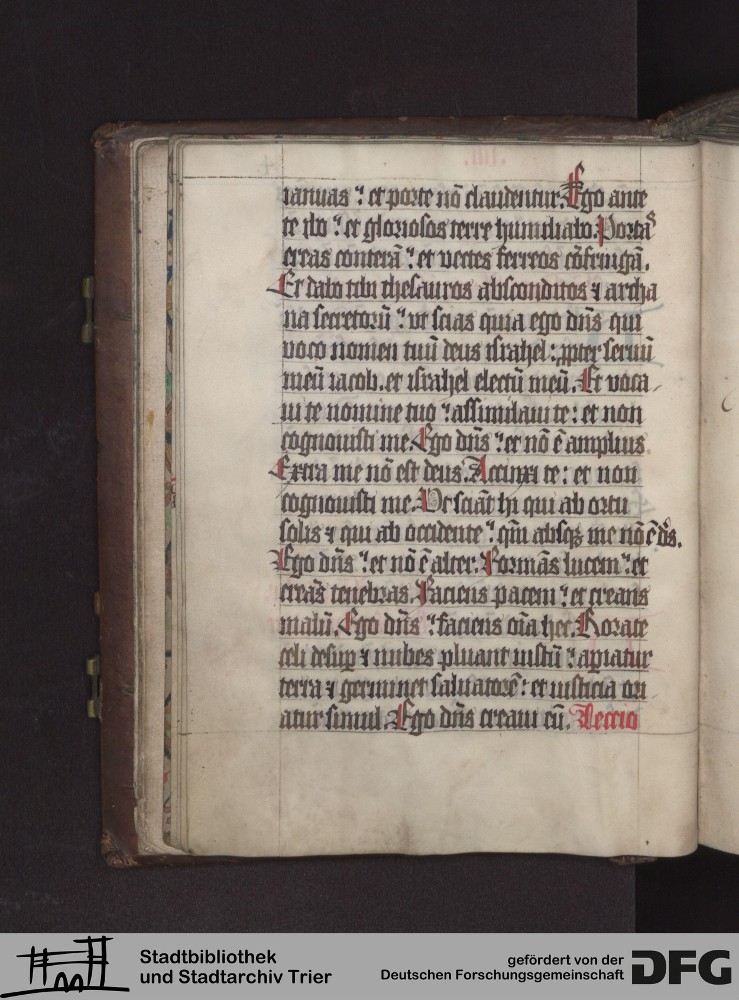 .iiii.
ianuas ⁊ et porte nō claudentur. Ego ante
te ibo ⁊ et gloriosos terre humiliabo. Portas
ereas conterā ⁊ et vectes ferreos cōfringā.
Et dabo tibi thesauros absconditos ⁊ archa
na secretorū ⁊ vt scias quia ego dn̄s qui
voco nomen tuū deus israhel : ꝓpter seruū
meū iacob. et israhel electū meū. Et voca-
ui te nomine tuo ⁊ assimilaui te : et non
cognouisti me. Ego dn̄s ⁊ et nō ē amplius
Extra me nō est deus. Accinxi te : et non
cognouisti me. Vt sciāt hi qui ab ortu
solis ⁊ qui ab occidente ⁊ qm̄ absqꝫ me nō ē ds̄.
Ego dn̄s ⁊ et nō ē alter. Formās lucem ⁊ et
creās tenebras. Faciens pacem ⁊ et creans
malū. Ego dn̄s ⁊ faciens oīa hec. Rorate
celi desuꝑ ⁊ nubes pluant iustū ⁊ apiatur
terra ⁊ germinet saluatorē : et iusticia ori
atur simul. Ego dn̄s creaui eū. Leccio
Stadtbibliothek
und Stadtarchiv Trier
gefördert von der
Deutschen Forschungsgemeinschaft
DFG